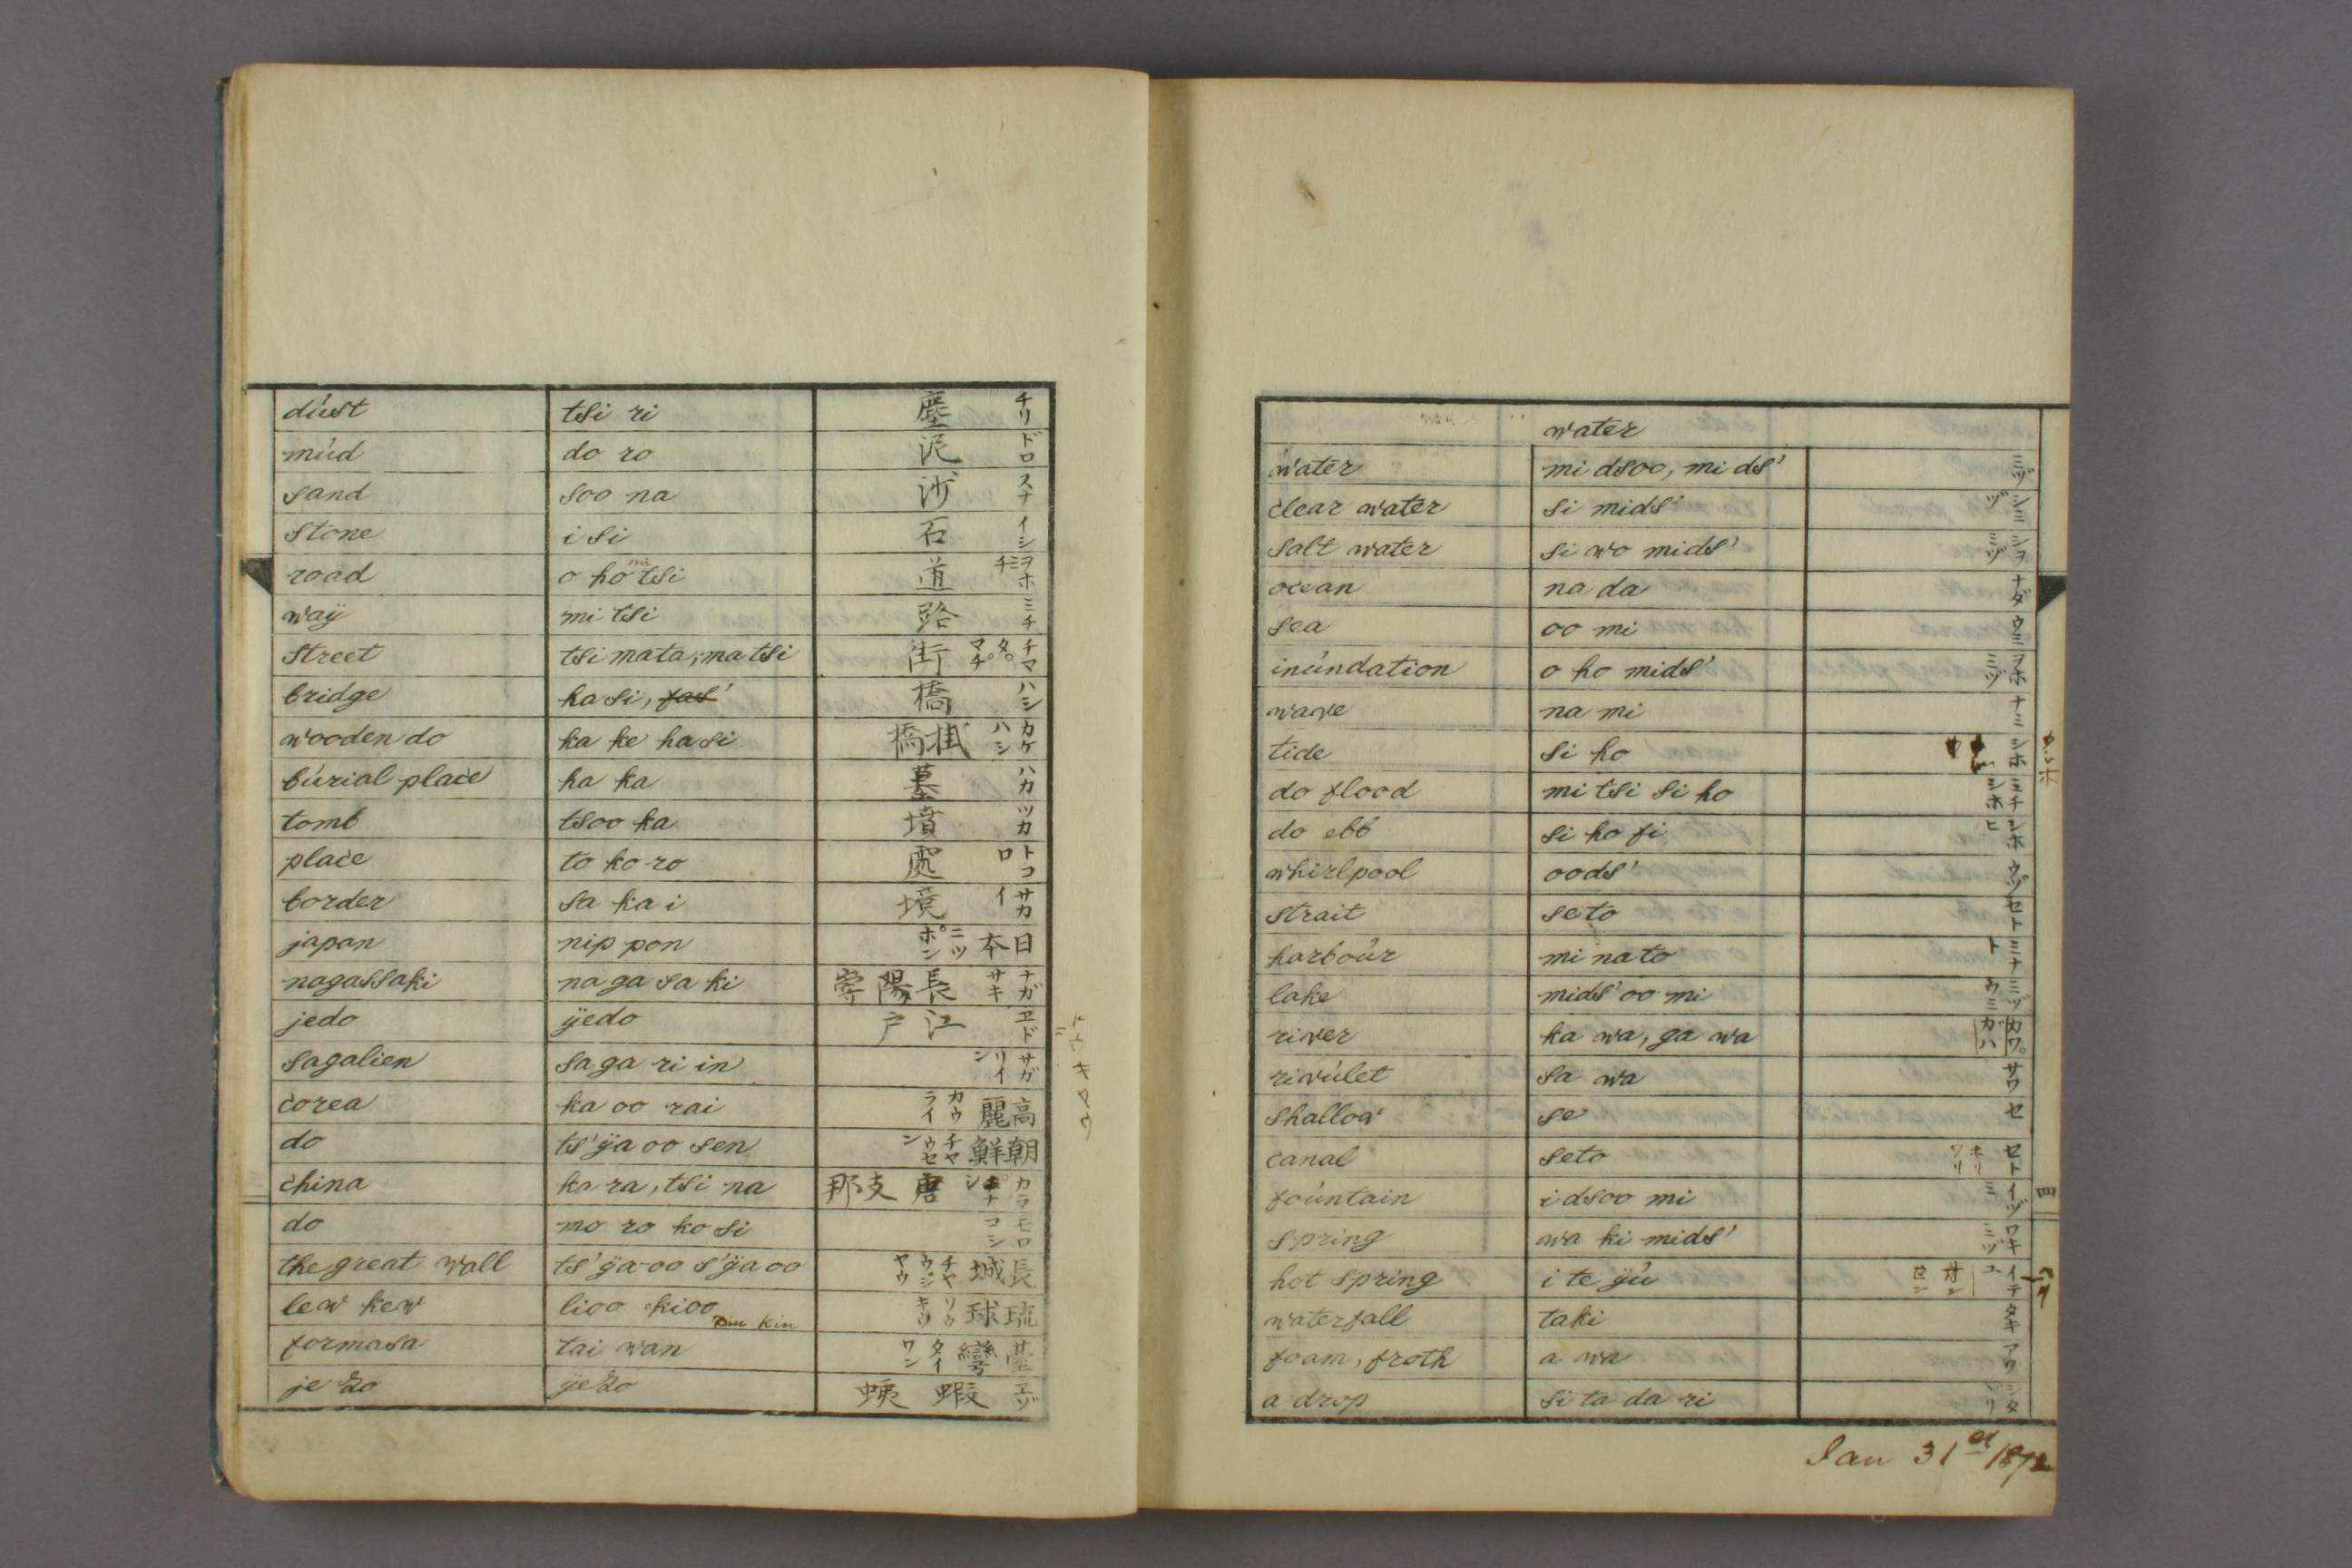 dúst tsi ri 塵 チリ
múd do ro 泥 ドロ
sand soo na 沙 スナ
stone i si 石 イシ
road o ho mi tsi 道 ヲホミチ
waÿ mi tsi 路 ミチ
street tsi mata, ma tsi 街 チマタ。マチ
bridge ha si, fas' 橋 ハシ
wooden do ka ke ha si 掛橋 カケハシ
búrial place ha ka 墓 ハカ
tomb tsoo ka 墳 ツカ
place to ko ro 處 トコロ
border sa ka i 境 サカイ
japan nip pon 日本 ニツポン
nagassaki na ga sa ki 長陽 ナガサキ
jedo ÿedo 江戸 ヱド
sagalien sa ga ri in サガリイン
corea ka oo rai 高麗 カウライ
do ts'ÿa oo sen 朝鮮 チヤウセン
china ka ra, tsi na 唐 支那 カラ
do mo ro ko si モロコシ
the great wall ts'ÿa-oo s'ÿa oo 長城 チヤウジヤウ
lew kew lioo kioo 琉球 リウキウ
formasa tai wan 臺 タイワン
je zo ÿe zo 蝦蛦 エゾ
water
water mi dsoo, mi ds' ミヅ
clear water si mids' シミヅ
salt water si wo mids' シヲミヅ
ocean na da ナダ
sea oo mi ウミ
inúndation o ho mids' ヲホミヅ
wave na mi ナミ
tide si ho シホ
do flood mi tsi si ho ミチシホ
do ebb si ho fi シホヒ
whirlpool oods' ウヅ
strait se to セト
harboúr mi na to ミナト
lake mids' oo mi ミヅウミ
river ka wa, ga wa カワ。ガハ
rivúlet sa wa サワ
shallow se セ
canal seto セト ホリワリ
foúntain i dsoo mi イヅミ
spring wa ki mids' ワキミヅ
hot spring i te ÿú イテユ
waterfall taki タキ
foam, froth a wa アワ
a drop si ta da ri
四
Jan 31st 1872